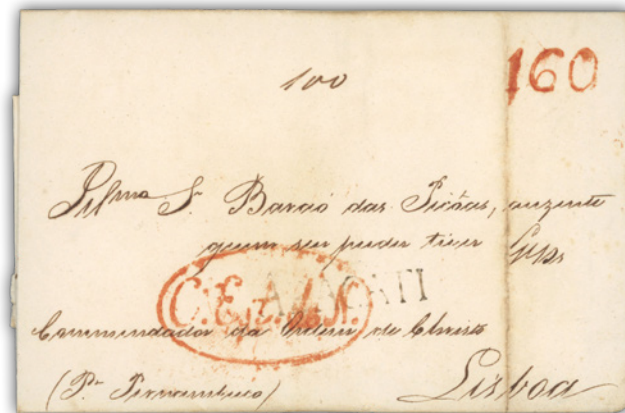 100
160
Illmo Sr. Barão das Picôas, auzente
quem seu puder tiver
C. Est. do N.
Commendador da Ordem de Christo
(Pr. Pernambuco)
Lisboa